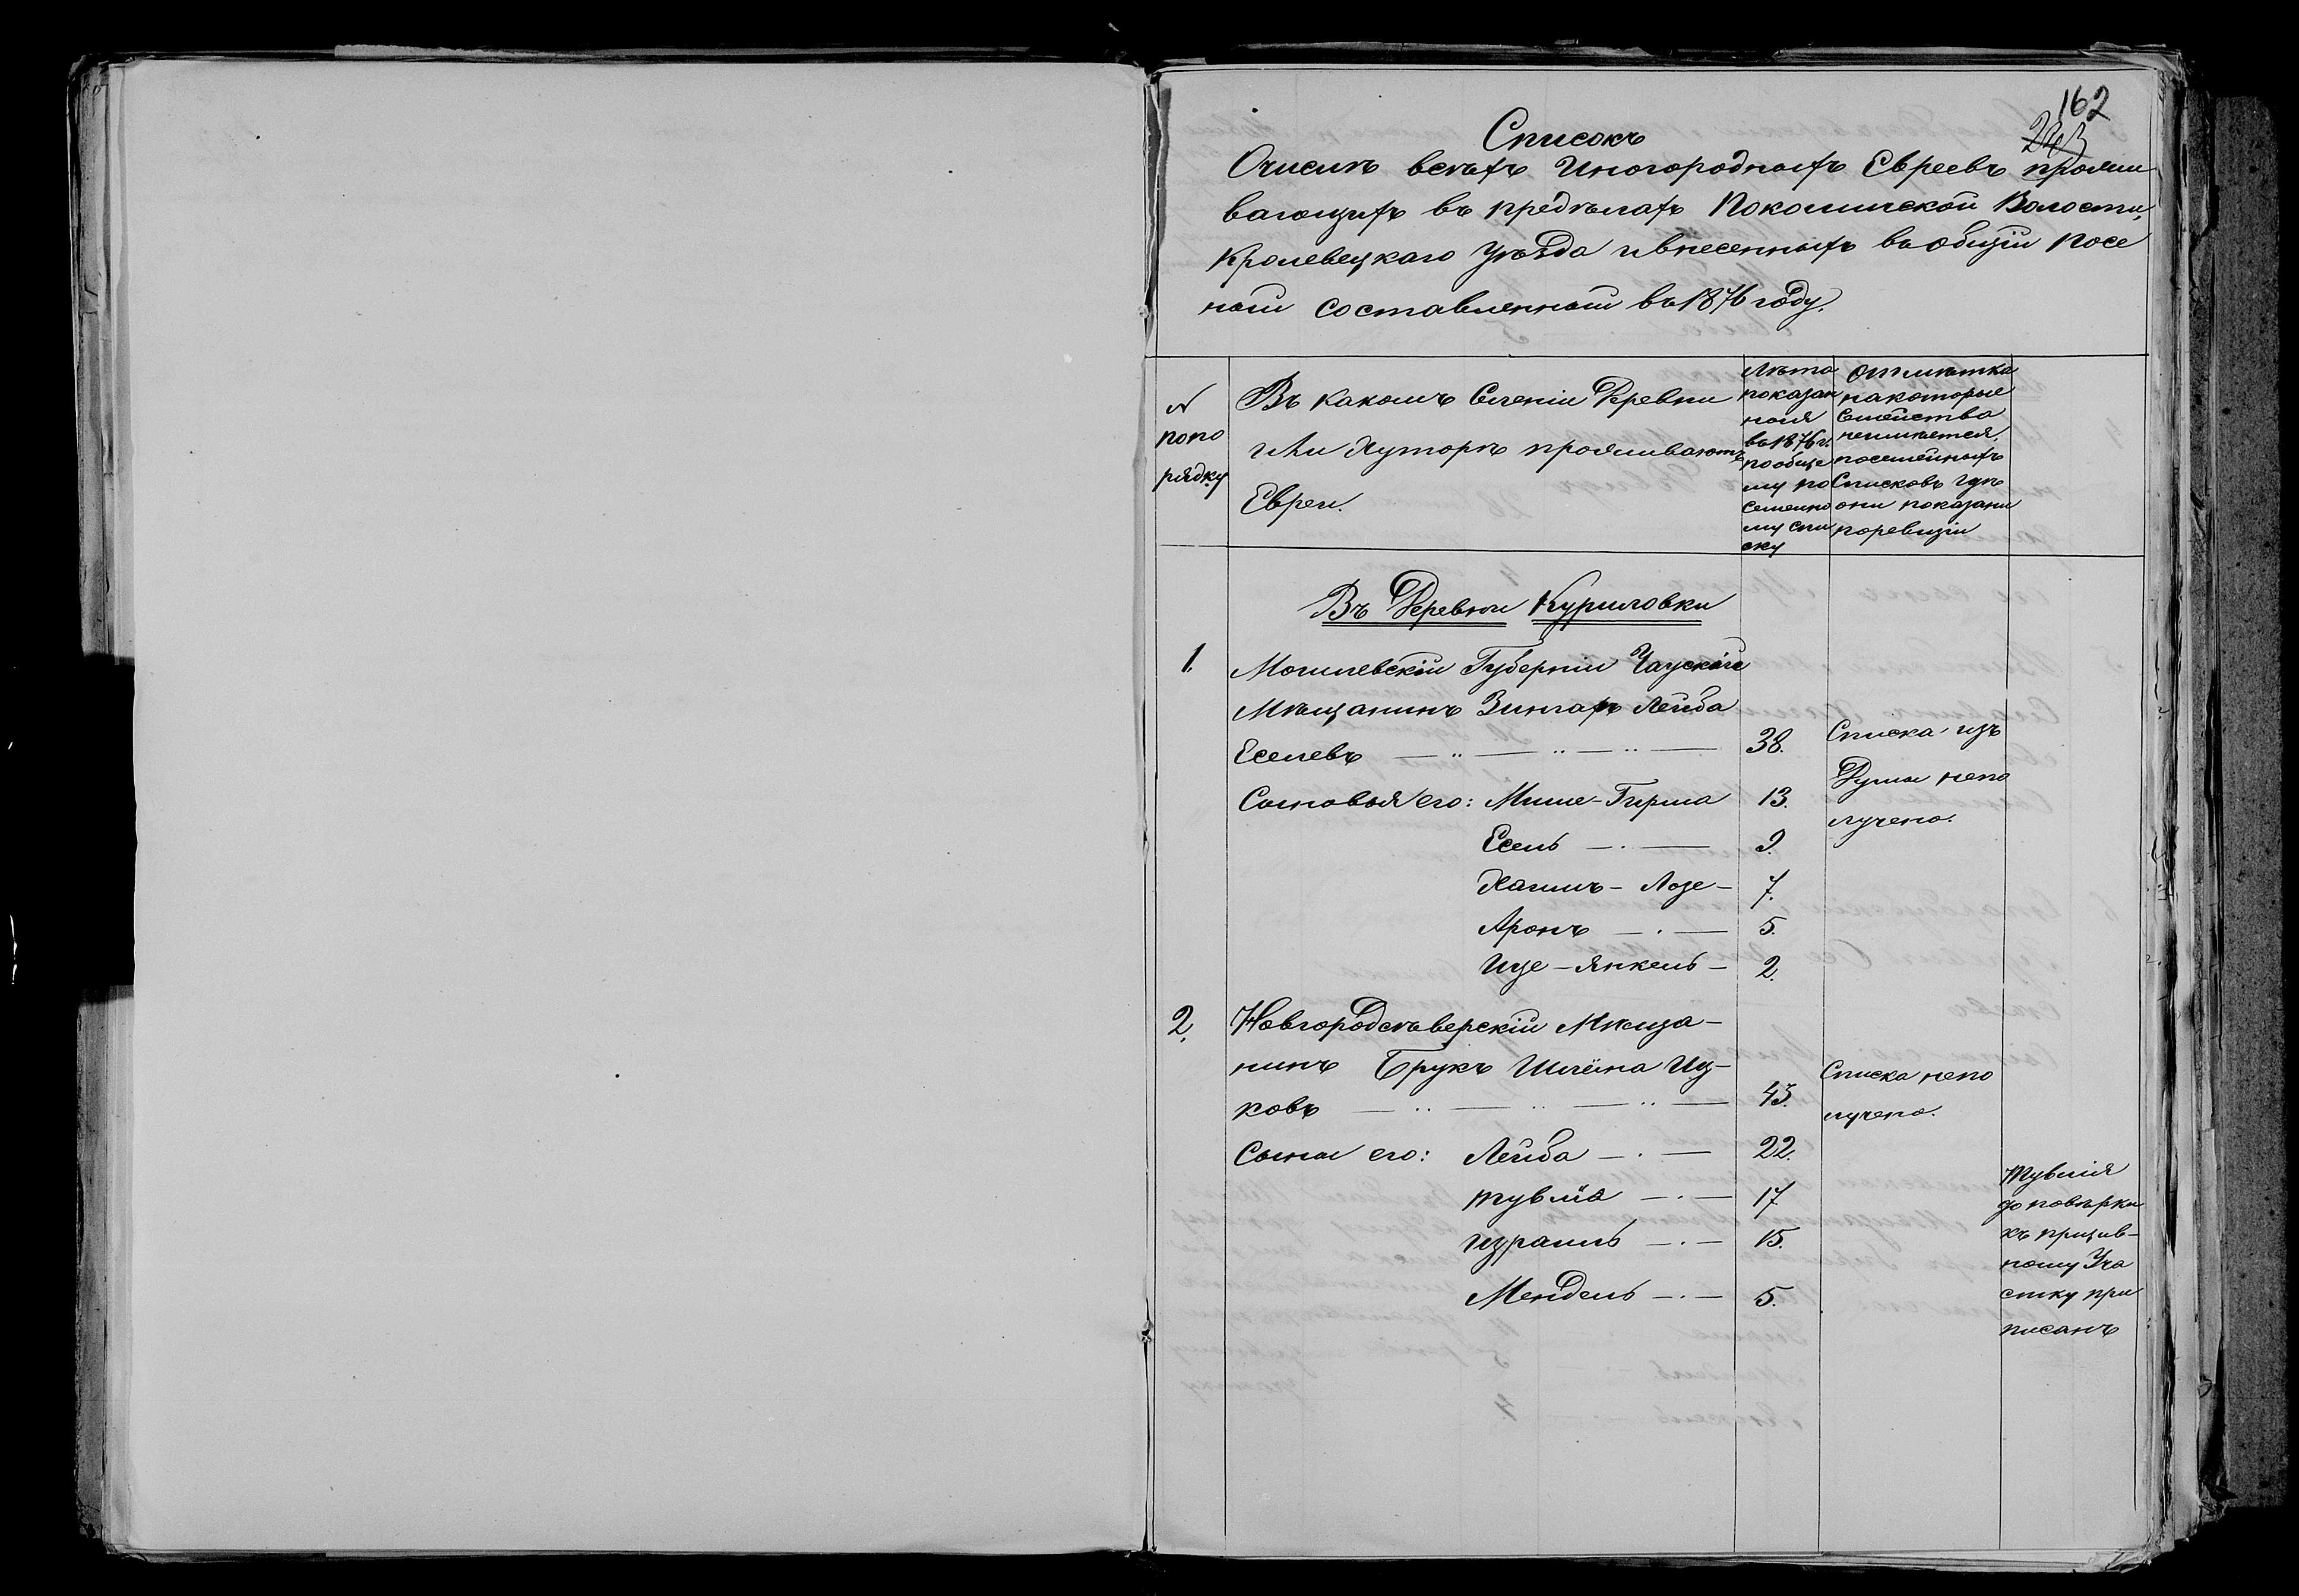 162
243
Списокъ
Очисилѣ всѣхъ Иногородныхъ Евреевъ прожи
вающихъ въ предѣлахъ Покошицкой Волости,
Кролевецкаго Уѣзда и внесенныхъ въ общій посе
ный составленный въ 1876 году.
№ Въ какомъ Селеніи Деревни
попо или Хуторѣ проживаютъ
рядку Евреи.
Лѣта
показан
ныя
въ 1876 г.
по обще
му по
семейно
му спи
ску
Отмѣтка
на которые
Семейства
неимѣется
посемейныхъ
Списковъ гдѣ
они показани
поревизіи
Въ Деревни Куриловки
1. Могилевскій Губерніи Чаускій
Мѣщанинъ Зингаръ Лейба
Еселевъ 38. Списка изъ
Думы непо
Сыновья его: Мише-Гирша 13.
лучено.
Есель 9.
Хаимъ - Лозе - 7.
Аронъ 5.
Ице - Янкель - 2.
2. Новгородсѣверскій Мѣща-
нинъ Брукъ Шлёма Иц-
ковъ 43. Списка непо
лучено.
Сыны его: Лейба 22.
Тувлія 17
Израиль 15.
Мендель 5.
Тувлія
до повѣрки
къ призив-
ному Уча
стку при
писанъ